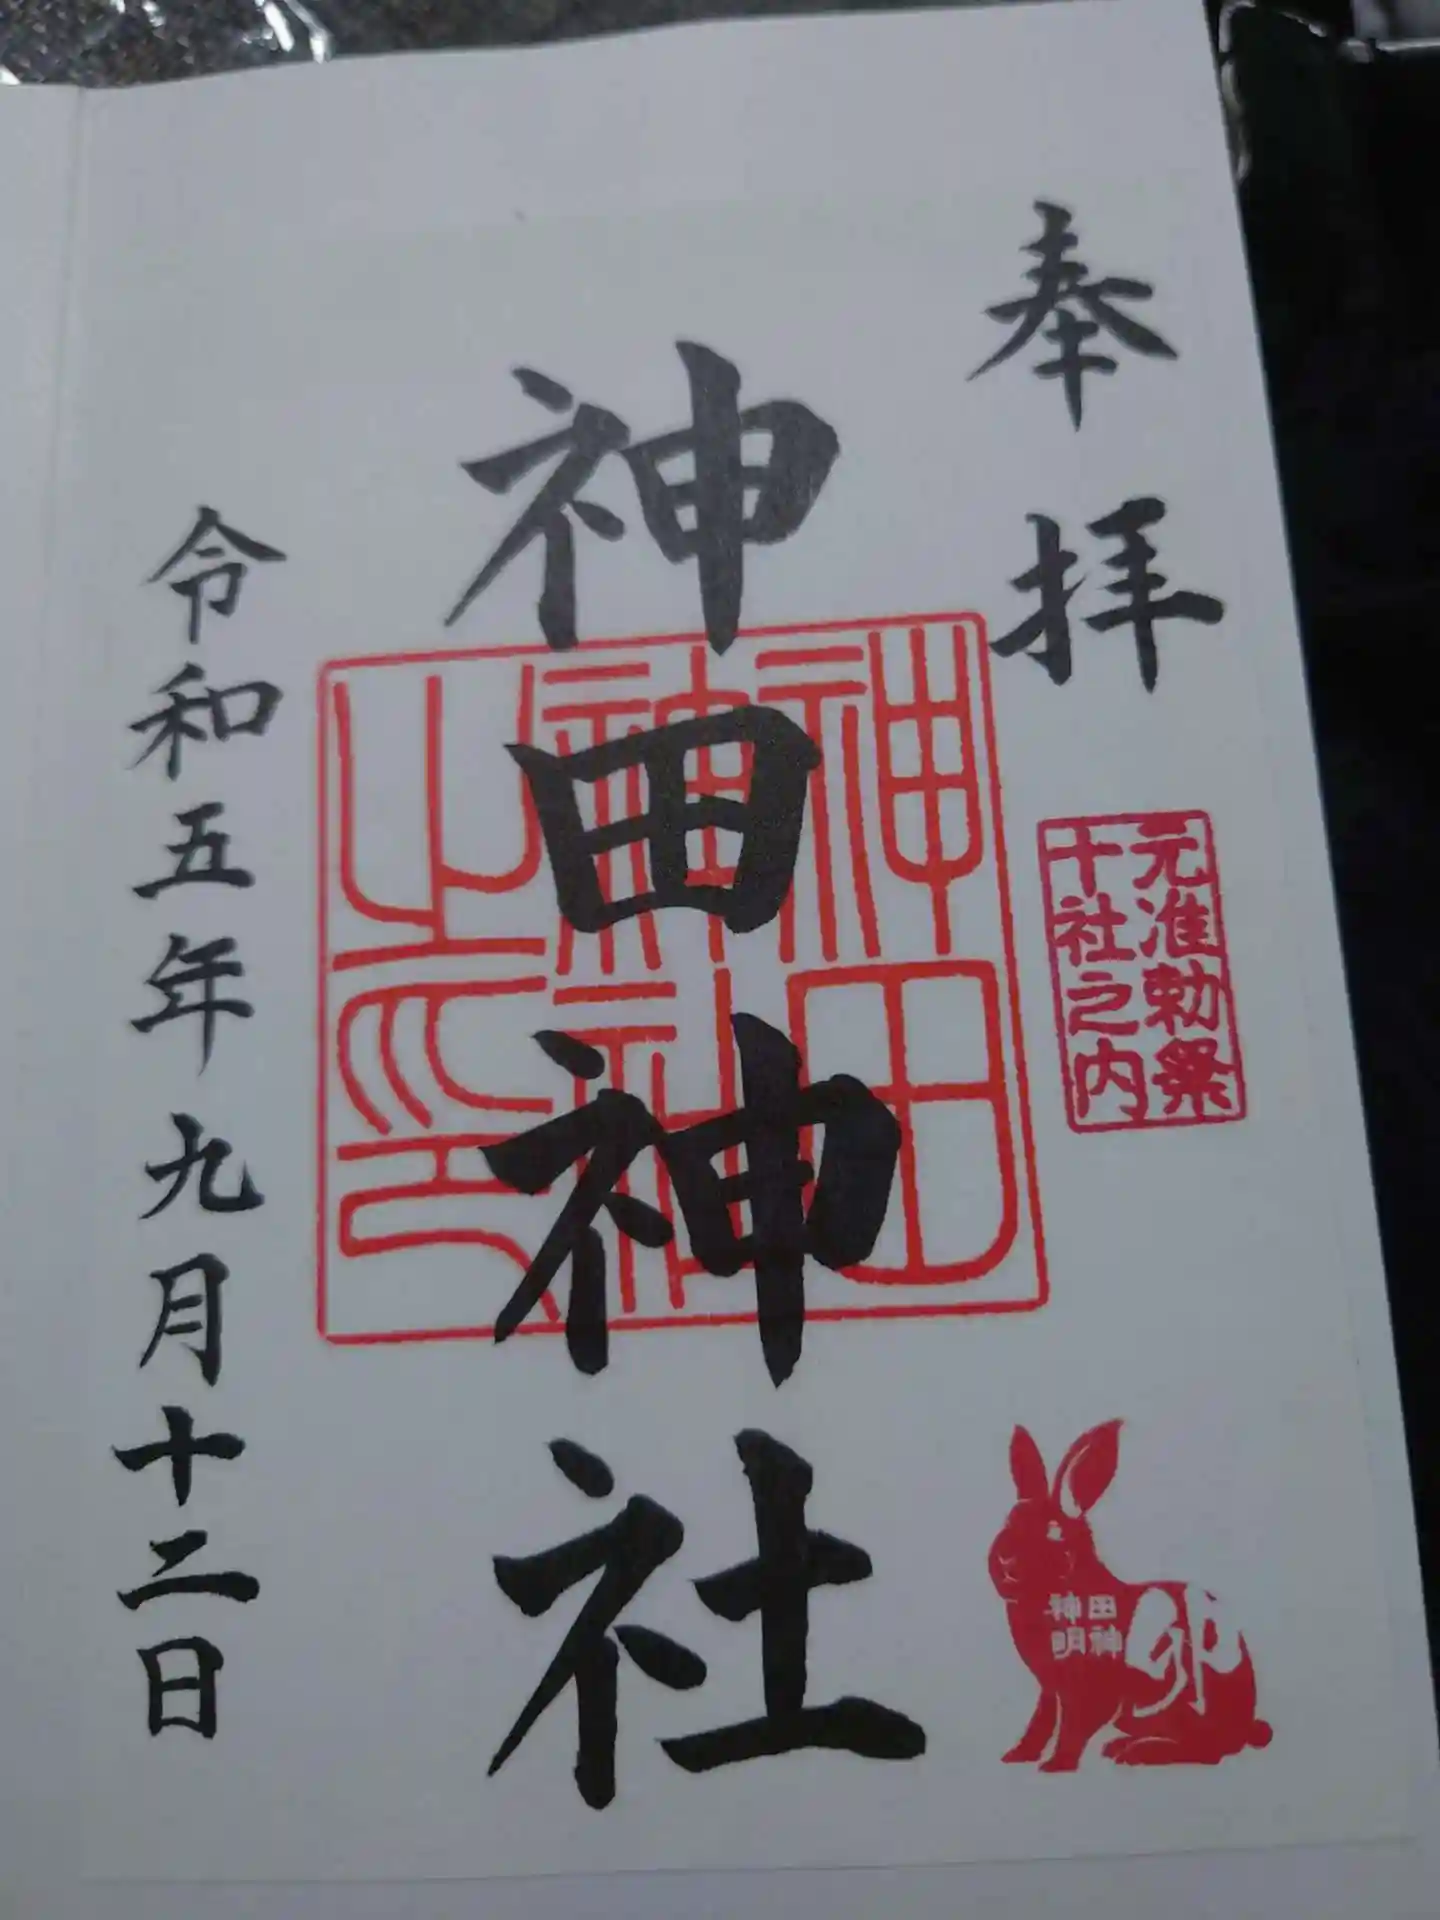 奉拝
元准勅祭
十社之内
神田神社
神田
神社
之印
田神
神明
卯
令和五年九月十二日